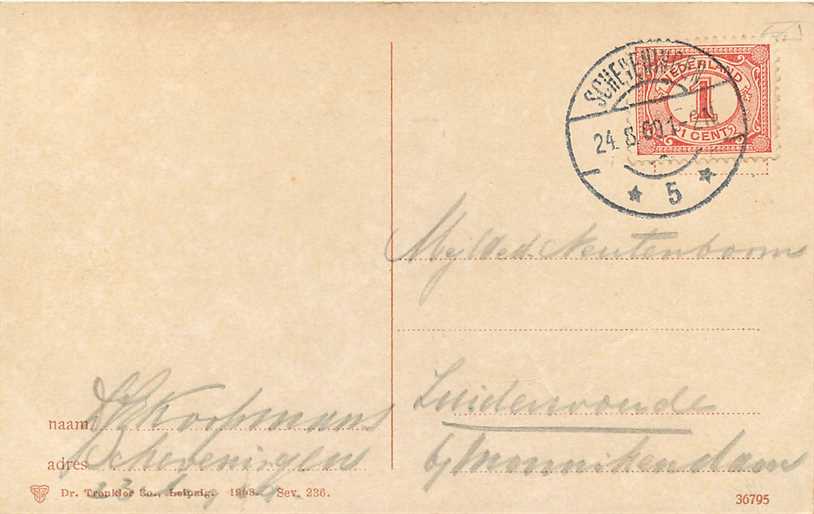 SCHEVENINGEN
NEDERLAND
1
CENT
24. 8. 09 1-2N
5
Mej Wed. Neutenboom
naam L Koopmans
Zuiderwoude
adres Scheveningen
b/ Monnikendam
23
Dr. Trenkler Co., Leipzig. 1908. Sev. 236.
36795